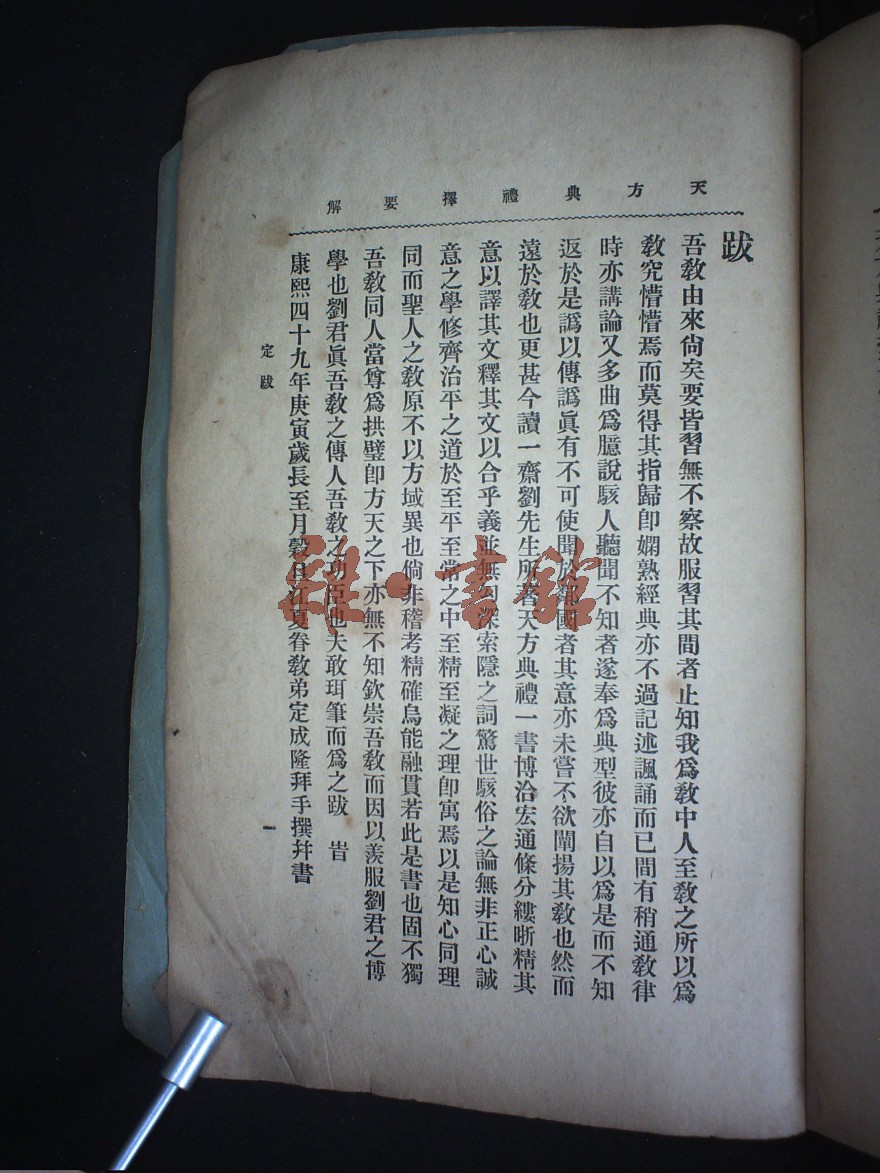 天方典禮擇要解
跋
吾敎由來尙矣要皆習無不察故服習其間者止知我爲敎中人至敎之所以爲
敎究懵懵焉而莫得其指歸卽嫻熟經典亦不過記述諷誦而已間有稍通敎律
時亦講論又多曲爲臆說駭人聽聞不知者遂奉爲典型彼亦自以爲是而不知
返於是譌以傳譌眞有不可使聞於鄰國者其意亦未嘗不欲闡揚其敎也然而
遠於敎也更甚今讀一齋劉先生所著天方典禮一書博洽宏通條分縷晰精其
意以譯其文釋其文以合乎義並無勾深索隱之詞驚世駭俗之論無非正心誠
意之學修齊治平之道於至平至常之中至精至凝之理卽寓焉以是知心同理
同而聖人之敎原不以方域異也倘非稽考精確烏能融貫若此是書也固不獨
吾敎同人當尊爲拱璧卽方天之下亦無不知欽崇吾敎而因以羨服劉君之博
學也劉君眞吾敎之傳人吾敎之功臣也夫敢珥筆而爲之跋　旹
康熙四十九年庚寅歲長至月穀日江夏眷敎弟定成隆拜手撰幷書
定跋
一
雜·書館